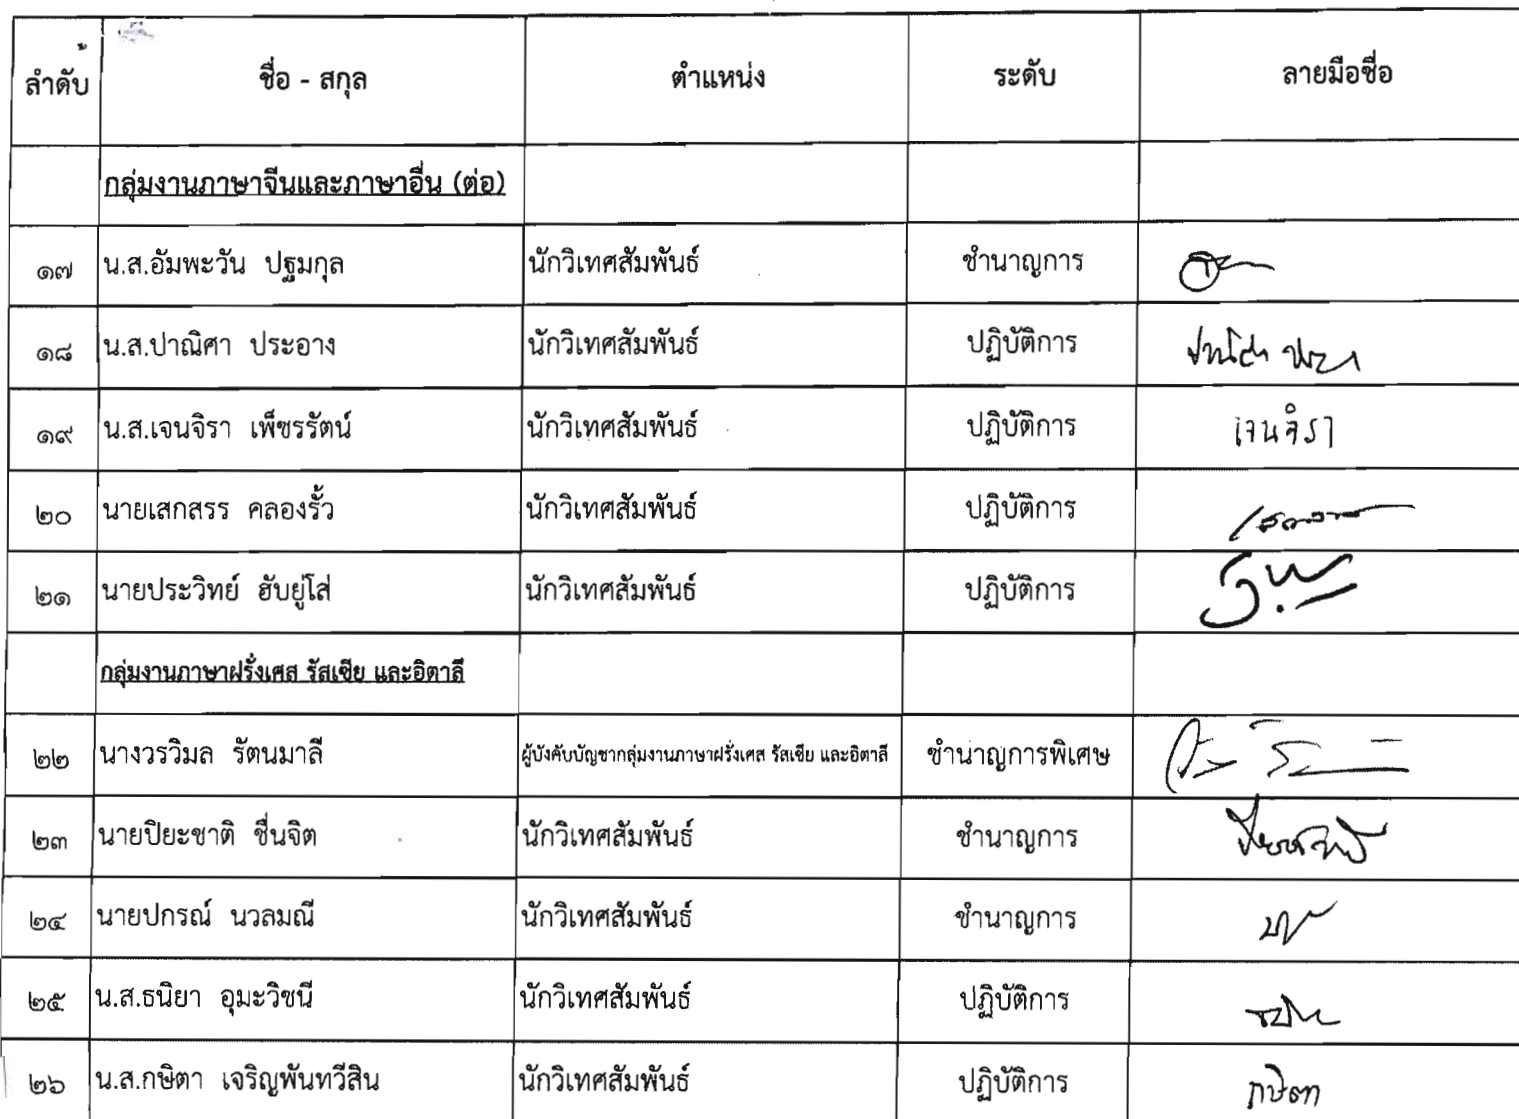 ลำดับ ชื่อ - สกุล ตำแหน่ง ระดับ ลายมือชื่อ
กลุ่มงานภาษาจีนและภาษาอื่น (ต่อ)
๑๗ น.ส.อัมพะวัน ปฐมกุล นักวิเทศสัมพันธ์ ชำนาญการ
๑๘ น.ส.ปาณิศา ประอาง นักวิเทศสัมพันธ์ ปฏิบัติการ
๑๙ น.ส.เจนจิรา เพ็ชรรัตน์ นักวิเทศสัมพันธ์ ปฏิบัติการ เจนจิรา
๒๐ นายเสกสรร คลองรั้ว นักวิเทศสัมพันธ์ ปฏิบัติการ
๒๑ นายประวิทย์ ฮับยู่โส่ นักวิเทศสัมพันธ์ ปฏิบัติการ
กลุ่มงานภาษาฝรั่งเศส รัสเซีย และอิตาลี
๒๒ นางวรวิมล รัตนมาลี ผู้บังคับบัญชากลุ่มงานภาษาฝรั่งเศส รัสเซีย และอิตาลี ชำนาญการพิเศษ
๒๓ นายปิยะชาติ ชื่นจิต นักวิเทศสัมพันธ์ ชำนาญการ
๒๔ นายปกรณ์ นวลมณี นักวิเทศสัมพันธ์ ชำนาญการ
๒๕ น.ส.ธนิยา อุมะวิชนี นักวิเทศสัมพันธ์ ปฏิบัติการ
๒๖ น.ส.กษิตา เจริญพันทวีสิน นักวิเทศสัมพันธ์ ปฏิบัติการ กษิตา